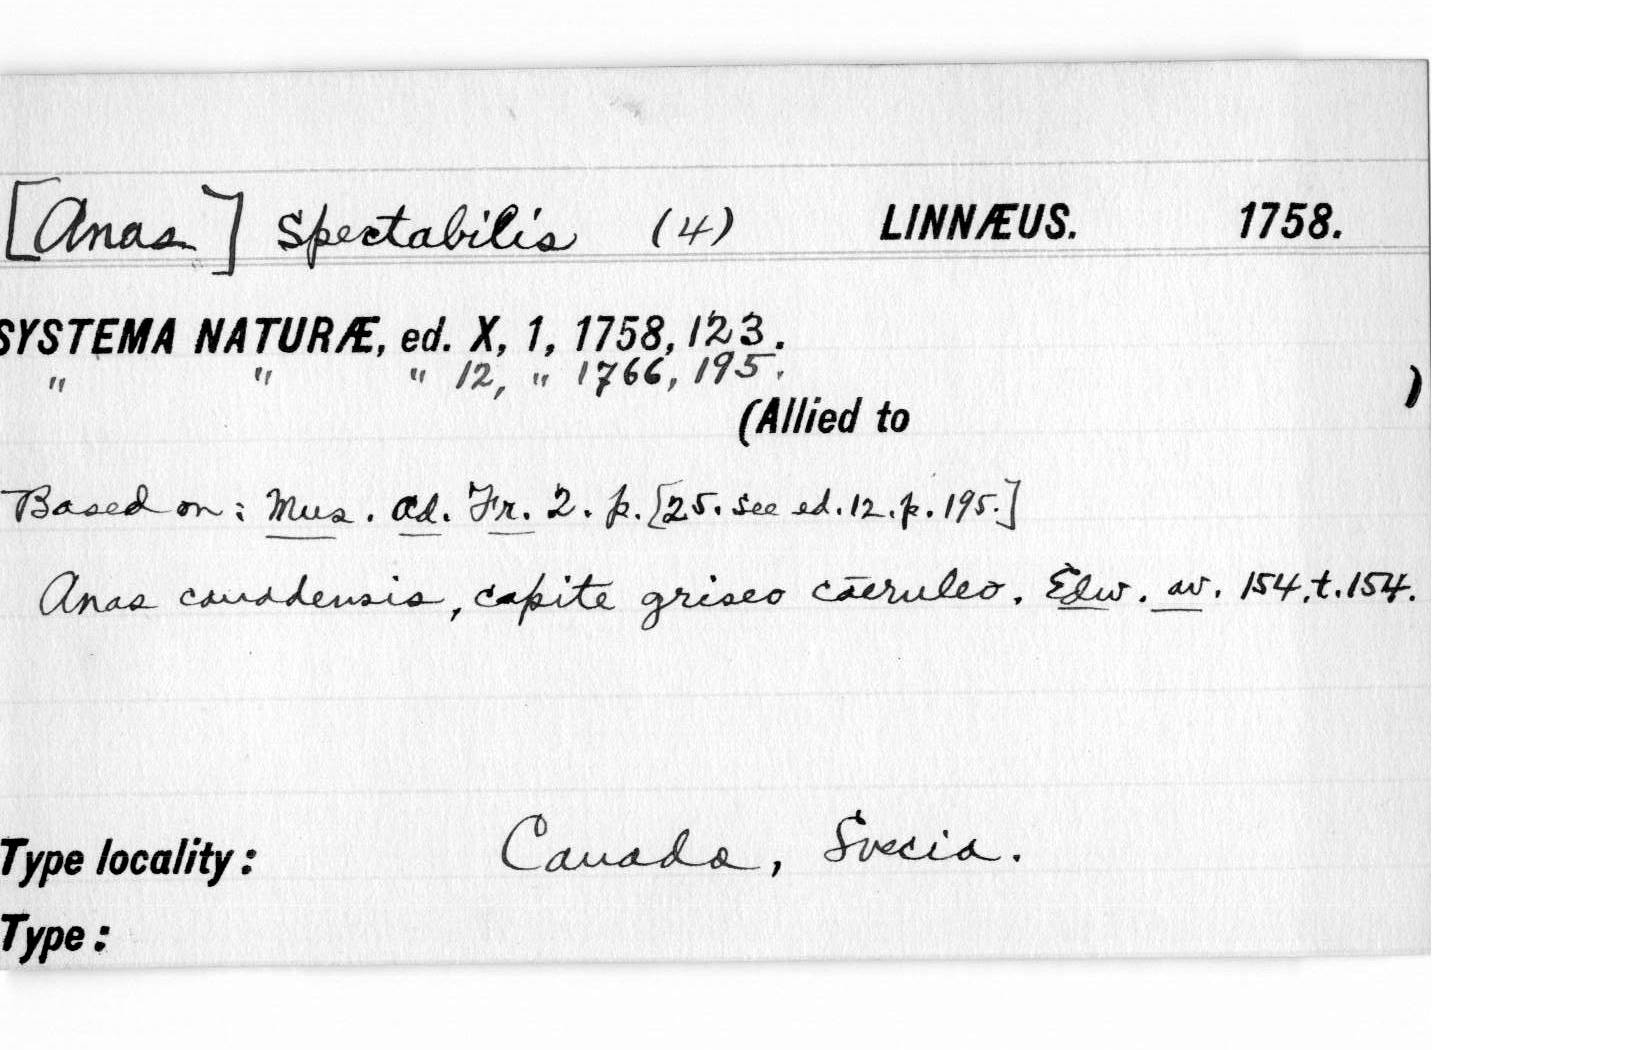 [Anas] spectabilis (4) LINNÆUS. 1758.
SYSTEMA NATURÆ, ed. X, 1, 1758, 123.
" " " 12, " 1766, 195.
(Allied to )
Based on: Mus. Ad. Fr. 2. p. [25. See ed. 12. p. 195.]
Anas canadensis, capite griseo cæruleo. Edw. av. 154. t. 154.
Type locality: Canada, Svecia.
Type: